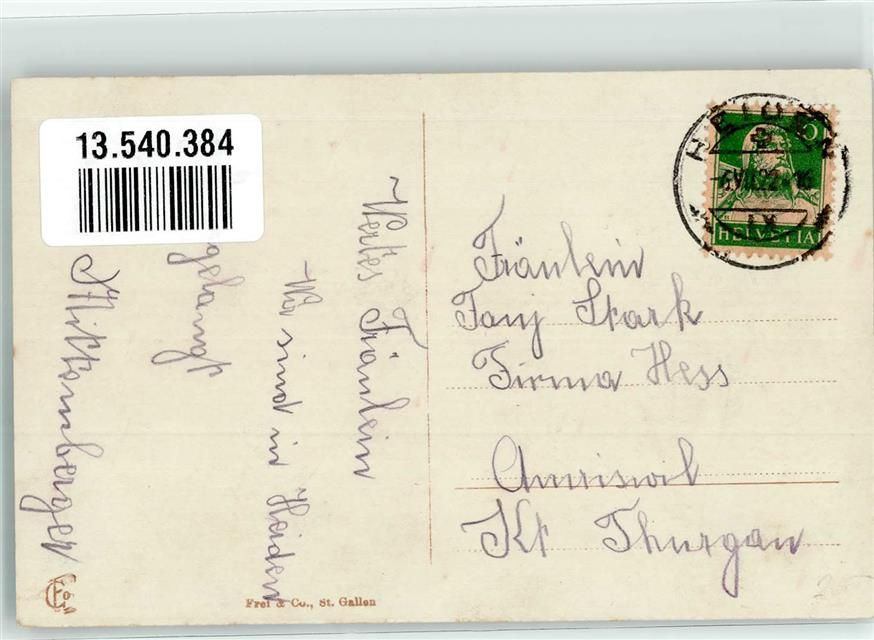 13.540.384
Wertes Fräulein
Wir sind in Heiden
angelangt
Mittenberger
Fräulein
Fanj Stark
Firma Hess
Amriswil
Kt Thurgau
HEIDEN
HELVETIA
Frei & Co., St. Gallen